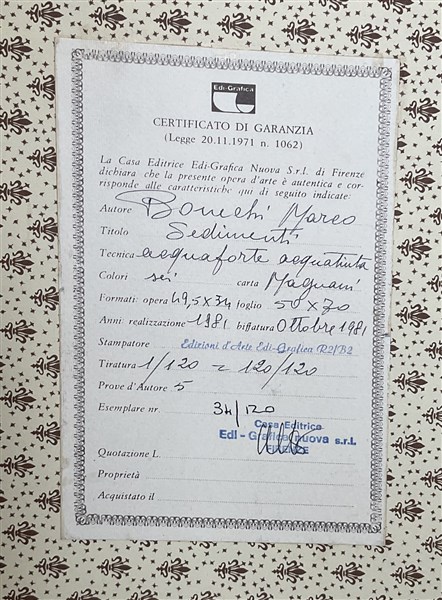 Edi-Grafica
CERTIFICATO DI GARANZIA
(Legge 20.11.1971 n. 1062)
La Casa Editrice Edi-Grafica Nuova S.r.l. di Firenze
dichiara che la presente opera d'arte è autentica e cor-
risponde alle caratteristiche qui di seguito indicate:
Autore Bonechi Marco
Titolo Sedimenti
Tecnica acquaforte acquatinta
Colori sei carta Magnani
Formati: opera 49,5x34 foglio 50x70
Anni: realizzazione 1981 biffatura Ottobre 1981
Stampatore Edizioni d'Arte Edi-Grafica R2/B2
Tiratura 1/120 = 120/120
Prove d'Autore 5
Esemplare nr. 34/120
Casa Editrice
Edi-Grafica nuova s.r.l.
FIRENZE
Quotazione L.
Proprietà
Acquistato il